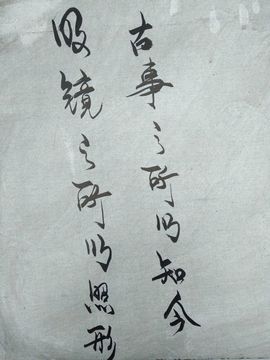 明镜之所以照形
古事之所以知今